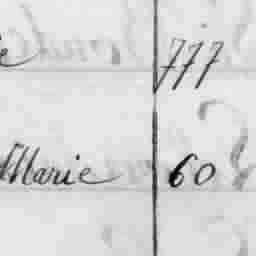 777
Marie 60